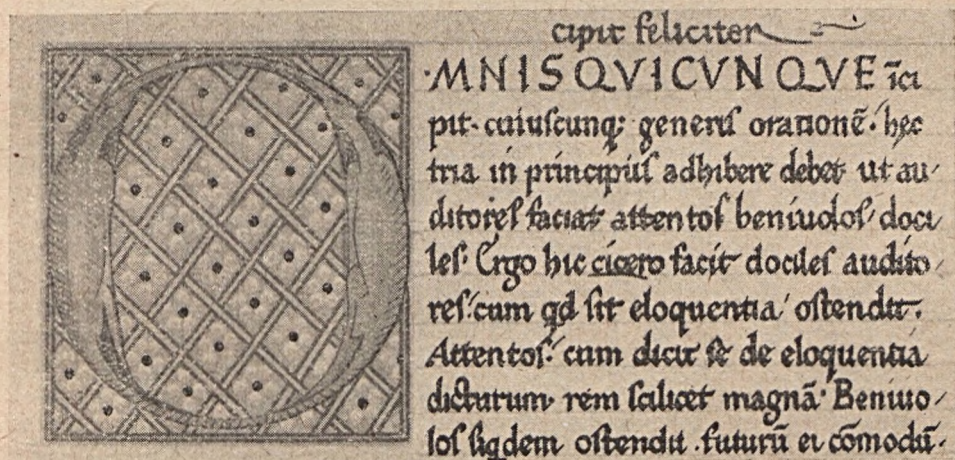 cipit feliciter
OMNIS QVICVNQVE īci
pit· cuiuscunq; generis orationē· hęc
tria in principiis adhibere debet ut au/
ditores faciat attentos beniuolos/ doci
les· Ergo hic cicero facit dociles audito/
res: cum qd sit eloquentia/ ostendit·
Attentos· cum dicit se de eloquentia
dicturum rem scilicet magnā· Beniuo/
los siqdem ostendit futurū ei cōmodū·